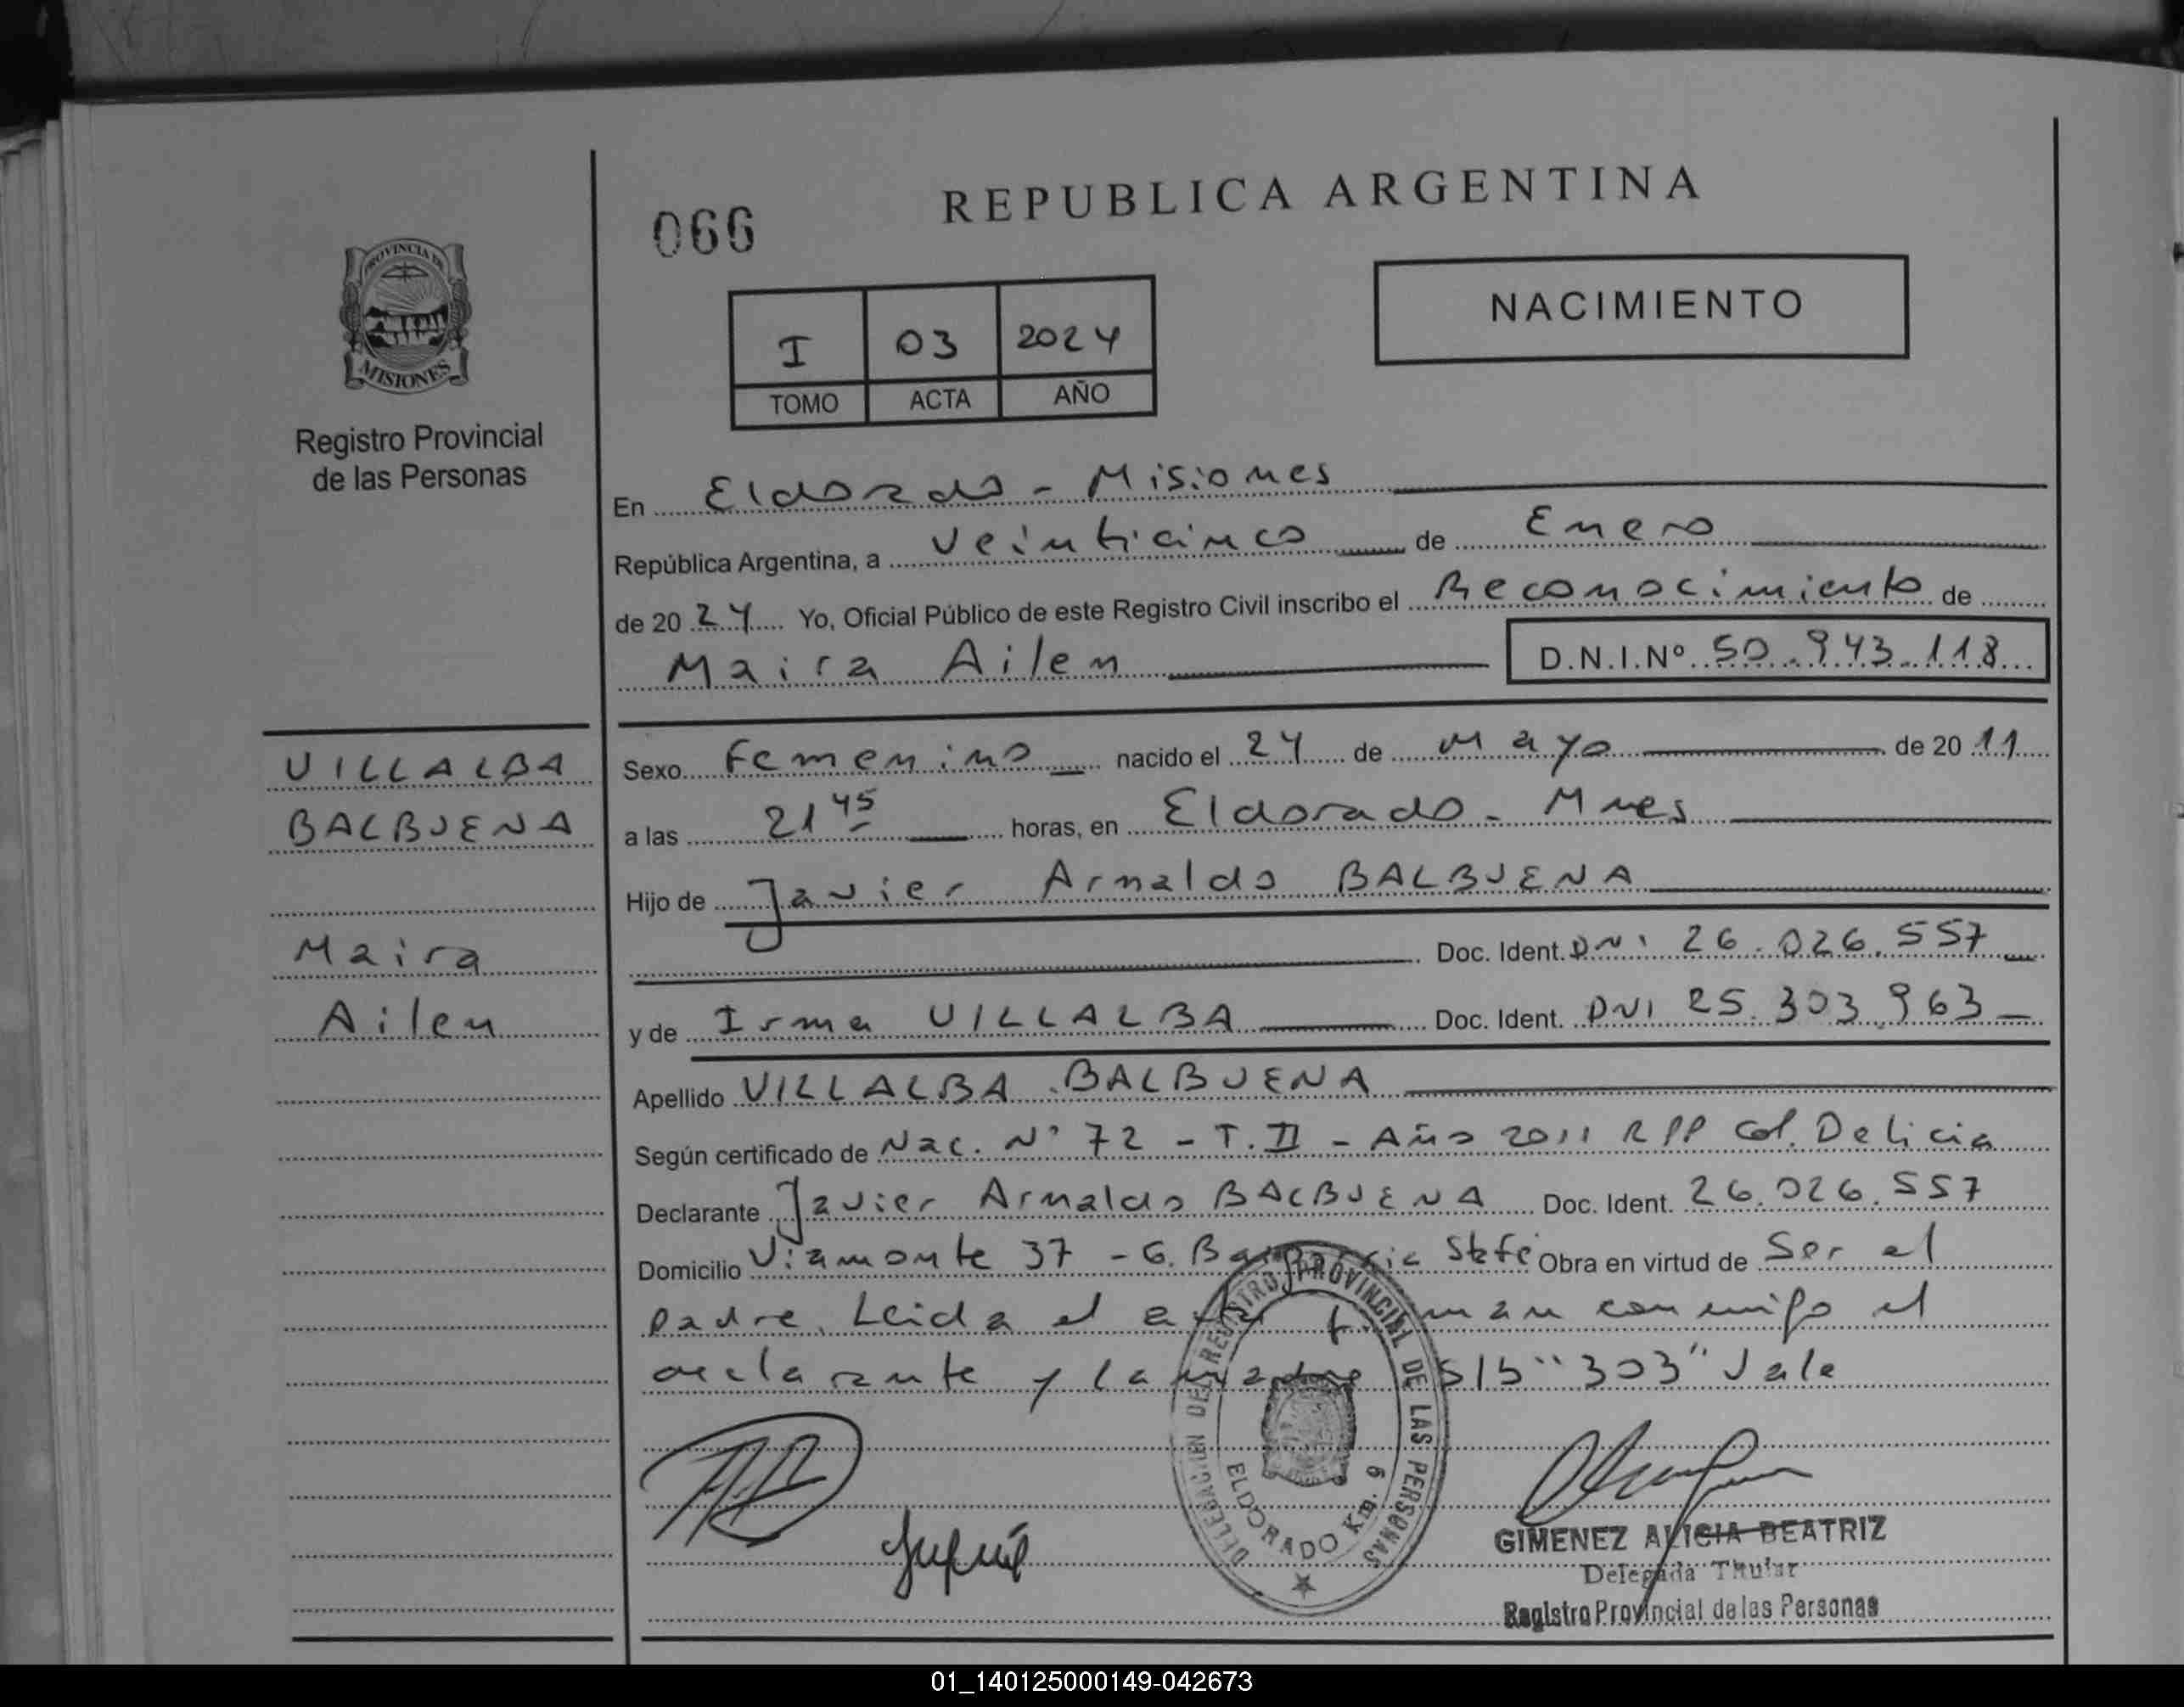 REPUBLICA ARGENTINA
066
NACIMIENTO
I 03 2024
TOMO ACTA AÑO
PROVINCIA DE
MISIONES
Registro Provincial
de las Personas
En Eldorado - Misiones
República Argentina, a veinticinco de Enero
de 20 24 Yo, Oficial Público de este Registro Civil inscribo el Reconocimiento de
Maira Ailen D.N.I.Nº 50.943.118
VILLALBA
BALBUENA
Maira
Ailen
Sexo Femenino nacido el 24 de Mayo de 20 11
a las 21 45 horas, en Eldorado - Mnes
Hijo de Javier Arnaldo BALBUENA
Doc. Ident. DNI 26.026.557
y de Irma VILLALBA Doc. Ident. DNI 25.303.963
Apellido VILLALBA BALBUENA
Según certificado de Nac. Nº 72 - T. II - Año 2011 RPP Col. Delicia
Declarante Javier Arnaldo BALBUENA Doc. Ident. 26.026.557
Domicilio Viamonte 37 - G. Stafé Obra en virtud de Ser el
padre. Leida el acta firman conmigo el
declarante y la madre S/b "303" Vale
DELEGACION DEL REGISTRO PROVINCIAL DE LAS PERSONAS
ELDORADO Km. 9
GIMENEZ ALICIA BEATRIZ
Delegada Titular
Registro Provincial de las Personas
01_140125000149-042673